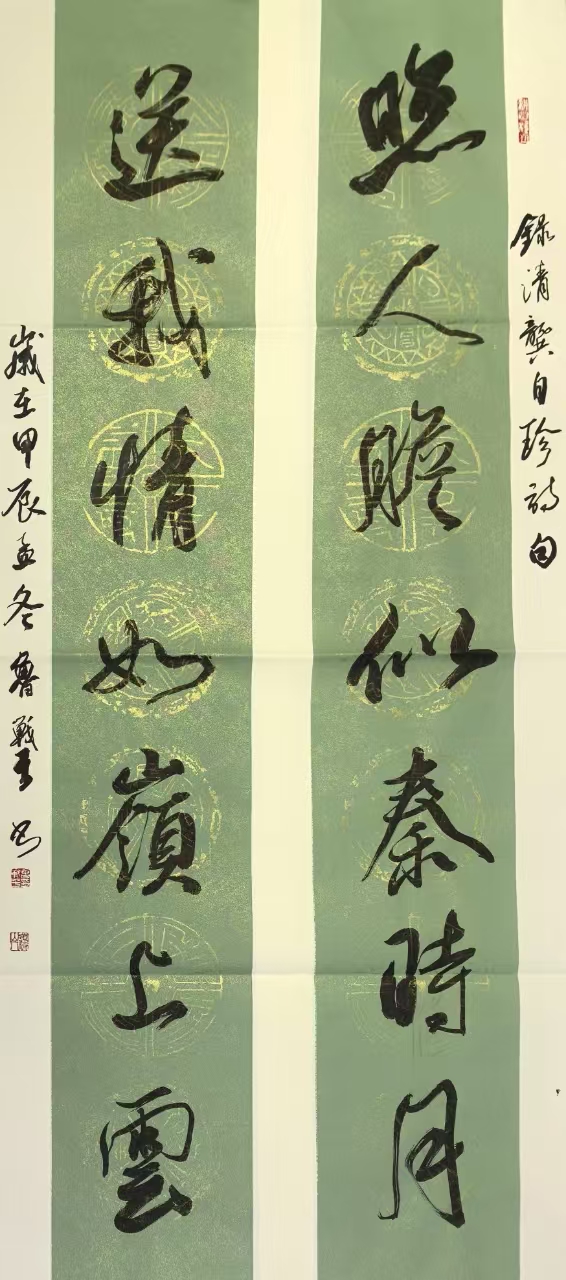 錄清龔自珍詩句
照人膽似秦時月
送我情如嶺上雲
歲在甲辰孟冬魯戰書